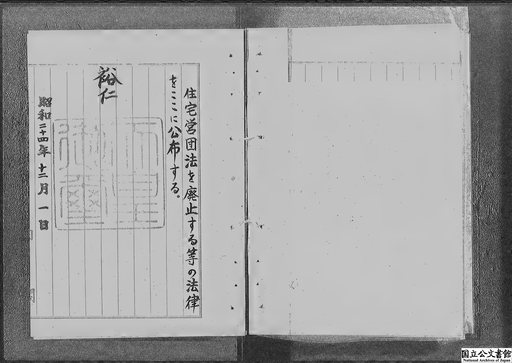 住宅営団法を廃止する等の法律
をここに公布する。
裕仁
昭和二十四年十二月一日
国立公文書館
National Archives of Japan